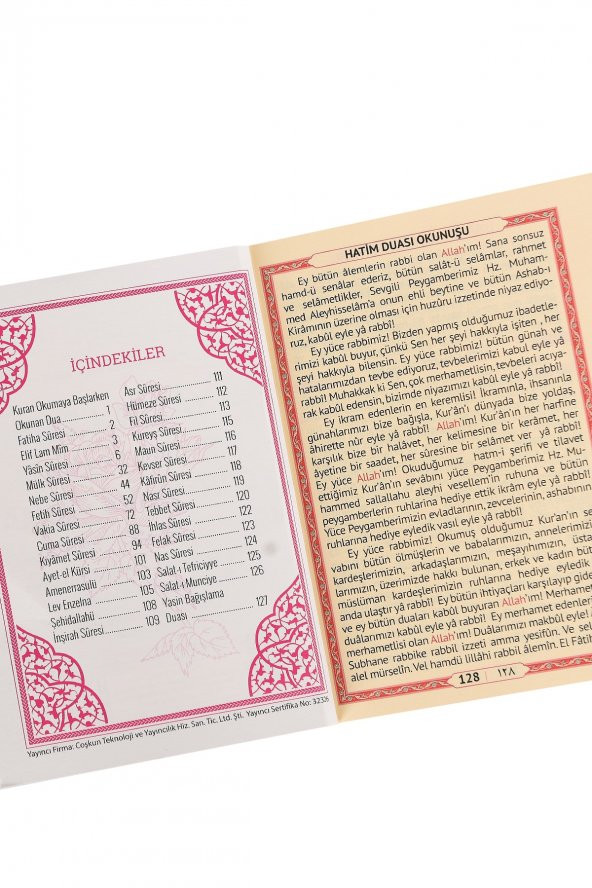 İÇİNDEKİLER
Kuran Okumaya Başlarken
Okunan Dua 1
Fatiha Sûresi 2
Elif Lam Mim 3
Yâsin Sûresi 6
Mülk Sûresi 32
Nebe Sûresi 44
Fetih Sûresi 52
Vakia Sûresi 72
Cuma Sûresi 88
Kıyâmet Sûresi 94
Ayet-el Kürsi 101
Amenerrasulü 103
Lev Enzelna 105
Şehidallahü 108
İnşirah Sûresi 109
Asr Sûresi 111
Hümeze Sûresi 112
Fil Sûresi 113
Kureyş Sûresi 115
Maun Sûresi 116
Kevser Sûresi 117
Kâfirûn Sûresi 118
Nasr Sûresi 119
Tebbet Sûresi 120
İhlas Sûresi 122
Felak Sûresi 123
Nas Sûresi 124
Salat-ı Tefriciyye 125
Salat-ı Munciye 126
Yasin Bağışlama
Duası 127
Yayıncı Firma: Coşkun Teknoloji ve Yayıncılık Hiz. San. Tic. Ltd. Şti. Yayıncı Sertifika No:
HATİM DUASI OKUNUŞU
Ey bütün âlemlerin rabbi olan Allah'ım! Sana sonsuz
hamd-ü senâlar ederiz, bütün salât-ü selâmlar, rahmet
ve selâmetlikler, Sevgili Peygamberimiz Hz. Muham-
med Aleyhisselâm'a onun ehli beytine ve bütün Ashab-ı
Kirâmının üzerine olması için huzûru izzetinde niyaz ediyo-
ruz, kabûl eyle yâ rabbî!
Ey yüce rabbimiz! Bizden yapmış olduğumuz ibadetle-
rimizi kabûl buyur, çünkü Sen her şeyi hakkıyla işiten , her
şeyi hakkıyla bilensin. Ey yüce rabbimiz! bütün günah ve
hatalarımızdan tevbe ediyoruz, tevbelerimizi kabûl eyle yâ
rabbî! Muhakkak ki Sen, çok merhametlisin, tevbeleri acıya-
rak kabûl edensin, bizimde niyazımızı kabûl eyle yâ rabbî!
Ey ikram edenlerin en keremlisi! İkramınla, ihsanınla
günahlarımızı bize bağışla, Kur'ân'ı dünyada bize yoldaş,
âhirette nûr eyle yâ rabbî! Allah'ım! Kur'ân'ın her harfine
karşılık bize bir halâvet, her kelimesine bir kerâmet, her
âyetine bir saadet, her sûresine bir selâmet ver yâ rabbî!
Ey yüce Allah'ım! Okuduğumuz hatm-i şerifi ve tilavet
ettiğimiz Kur'ân'ın sevâbını yüce Peygamberimiz Hz. Mu-
hammed sallallahu aleyhi vesellem'in ruhuna ve bütün
peygamberlerin ruhlarına hediye ettik ikrâm eyle yâ rabbî!
Yüce Peygamberimizin evladlarının, zevcelerinin, ashabının
ruhlarına hediye eyledik vasıl eyle yâ rabbî!
Ey yüce rabbimiz! Okumuş olduğumuz Kur'an'ın se-
vabını bütün ölmüşlerin ve babalarımızın, annelerimizi
kardeşlerimizin, arkadaşlarımızın, meşayıhımızın, üsta
larımızın, üzerimizde hakkı bulunan, erkek ve kadın büt
müslüman kardeşlerimizin ruhlarına hediye eyledik
anda ulaştır yâ rabbî! Ey bütün ihtiyaçları karşılayıp gide
ve ey bütün duaları kabûl buyuran Allah'ım! Merhamet
duâlarımızı kabûl eyle yâ rabbî! Ey merhamet edenler
merhametlisi olan Allah'ım! Duâlarımızı makbûl eyle!
Subhane rabbike rabbil izzeti amma yesifûn. Ve sel
alel mürselîn. Vel hamdü lillâhi rabbil âlemîn. El Fâtih
128 ١٢٨